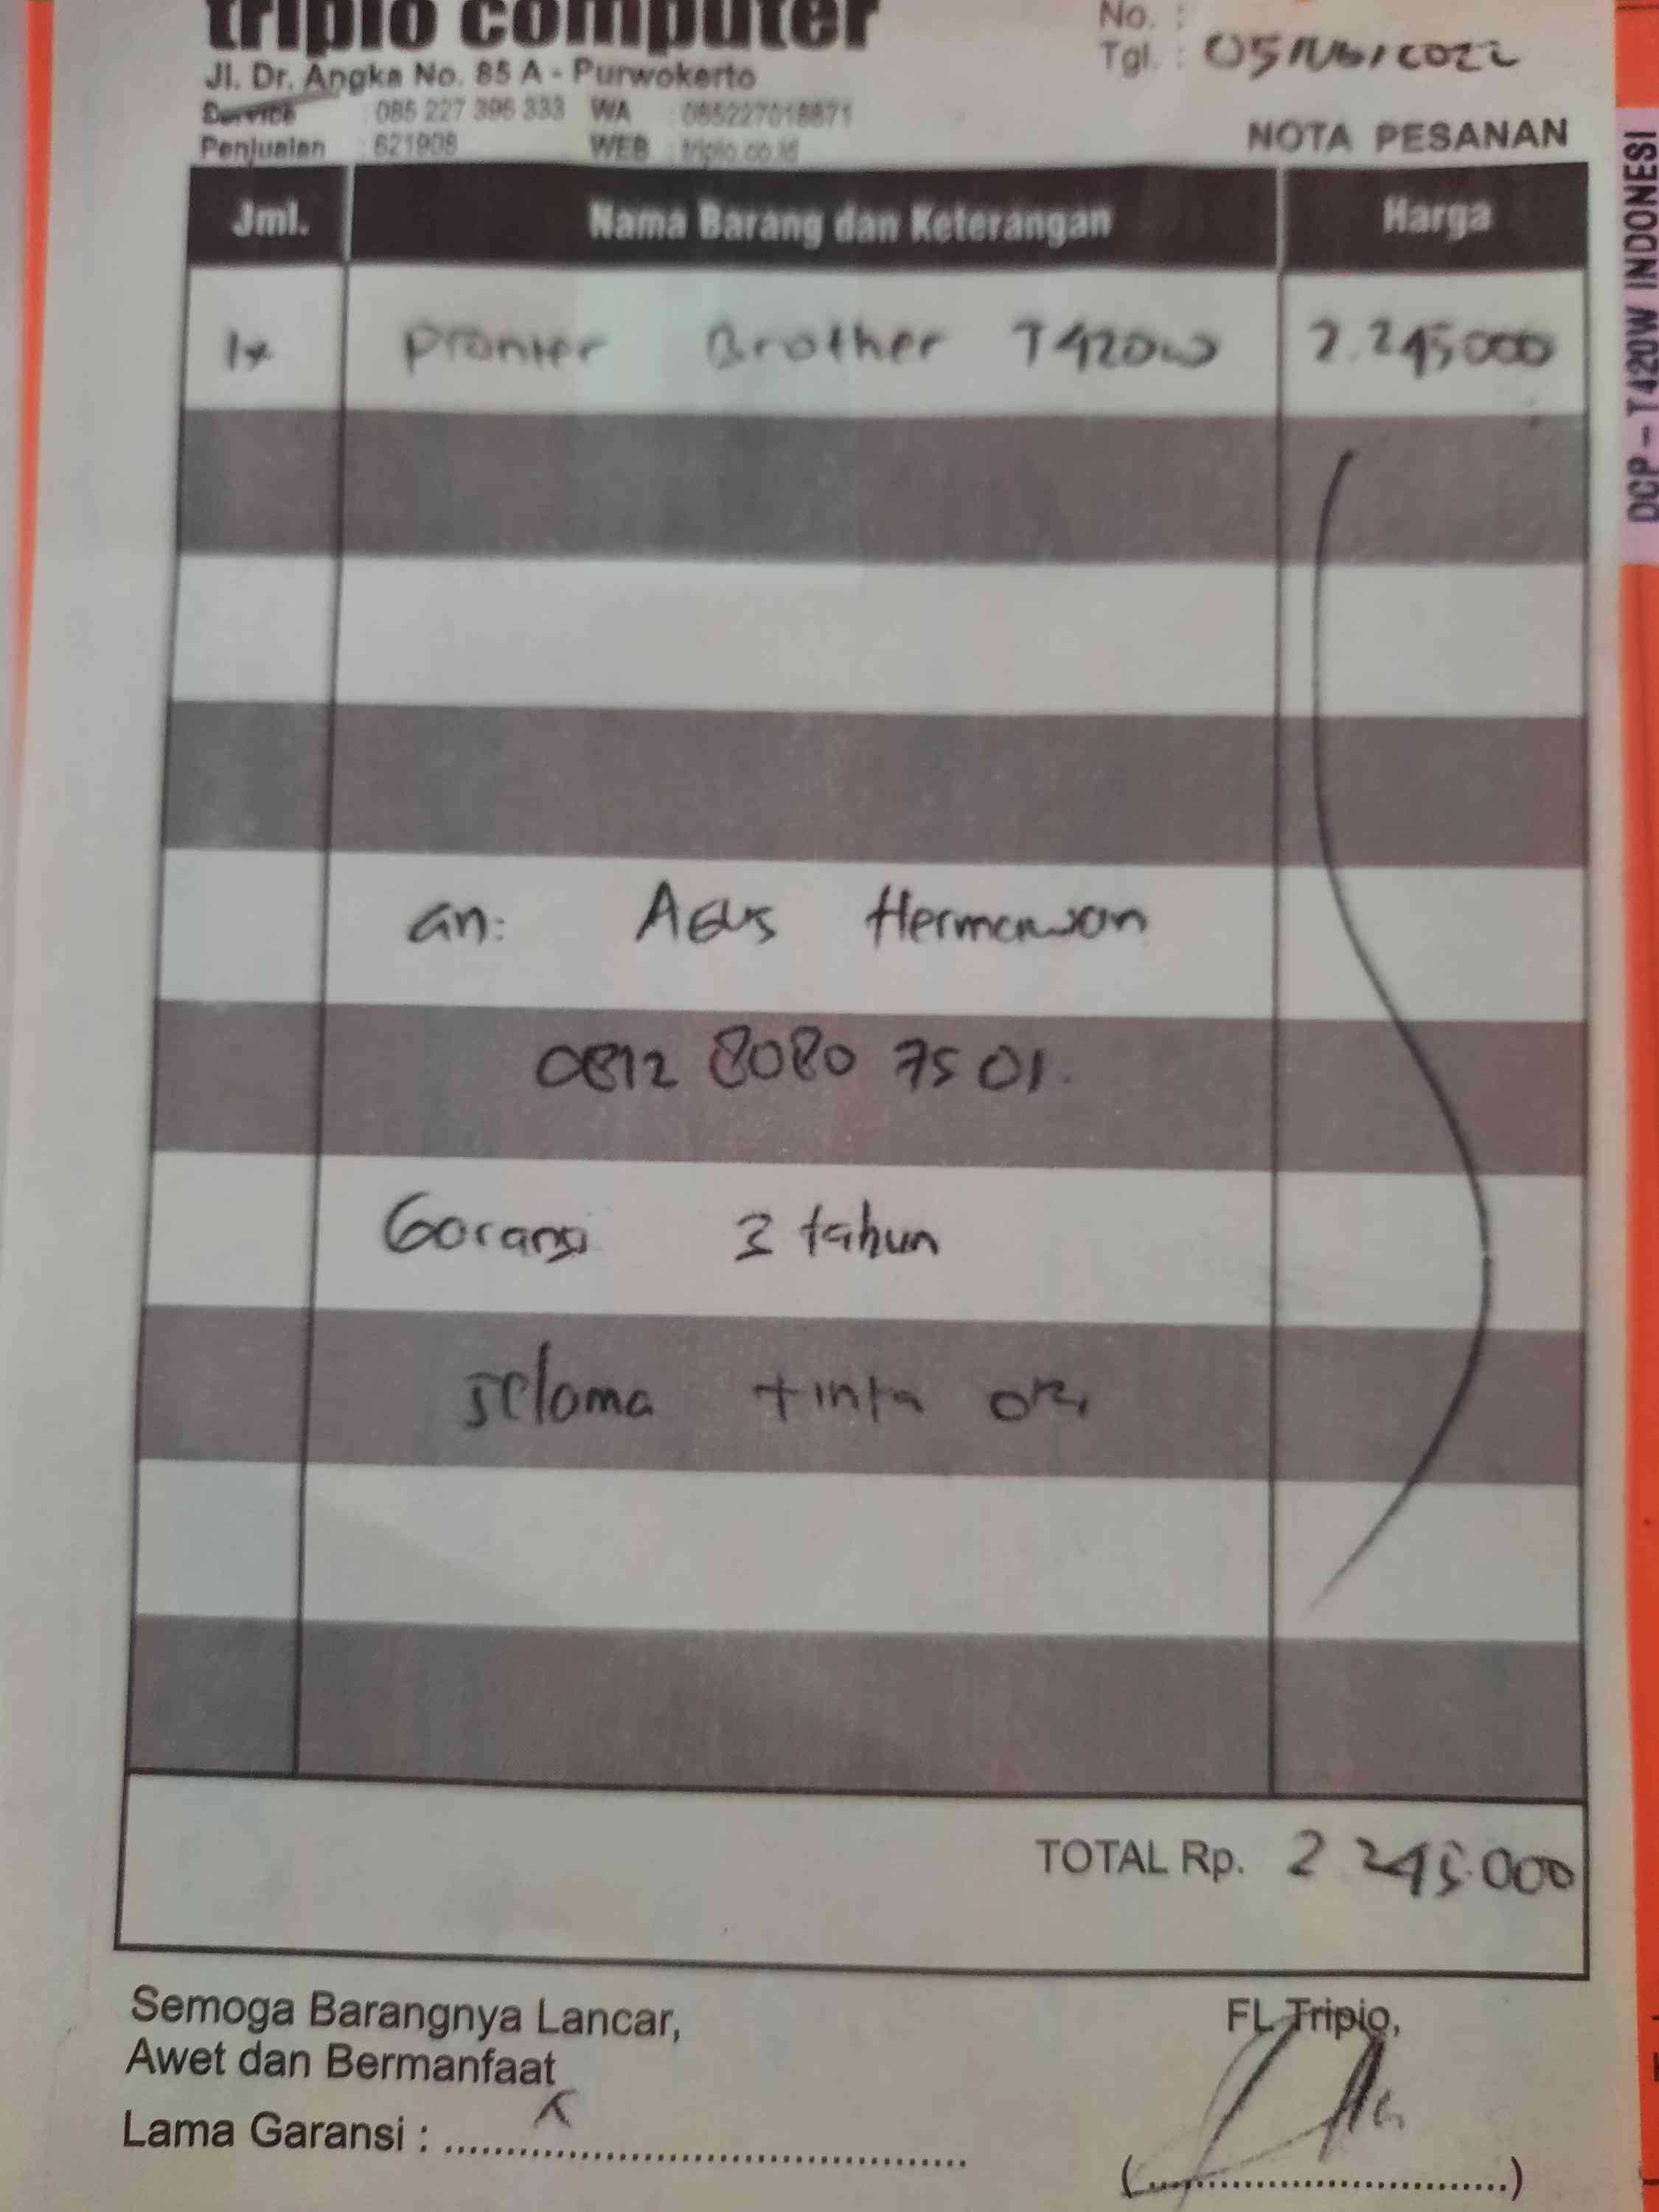 tripio computer
No. :
Tgl. : 05/06/2022
Jl. Dr. Angka No. 85 A - Purwokerto
Service : 085 227 396 333 WA : 085227018871
Penjualan : 621908 WEB : tripio.co.id
NOTA PESANAN
Jml. Nama Barang dan Keterangan Harga
1x Pronter Brother T420w 2.245000
an: Agus Hermawan
0812 8080 7501.
Goransi 3 tahun
selama tinta ori
TOTAL Rp. 2 245.000
Semoga Barangnya Lancar,
Awet dan Bermanfaat
Lama Garansi :
FL Tripio,
DCP – T420W INDONESI